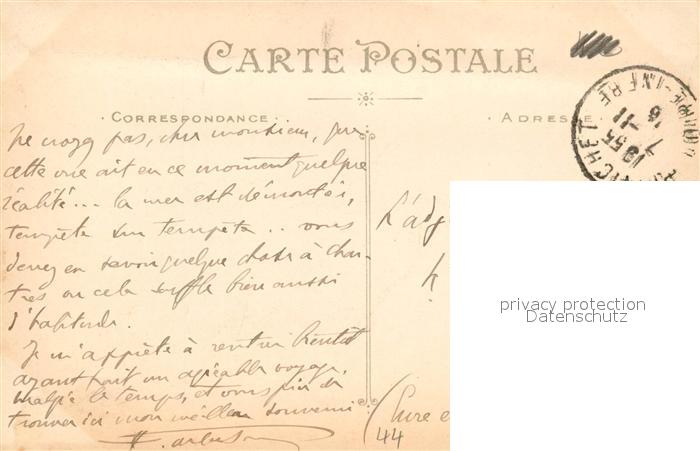 CARTE POSTALE
CORRESPONDANCE
ADRESSE
Ne croyez pas, cher monsieur, que
cette vue ait en ce moment quelque
réalité... la mer est démontée,
tempête sur tempête.. vous
devez en savoir quelque chose à Char-
tres où cela souffle bien aussi
d'habitude.
Je m'apprête à rentrer bientôt
ayant fait un agréable voyage,
malgré le temps, et vous prie de
trouver ici mon meilleur souvenir
L'adj
(Eure e
44
19 55
7 -11
16
privacy protection
Datenschutz